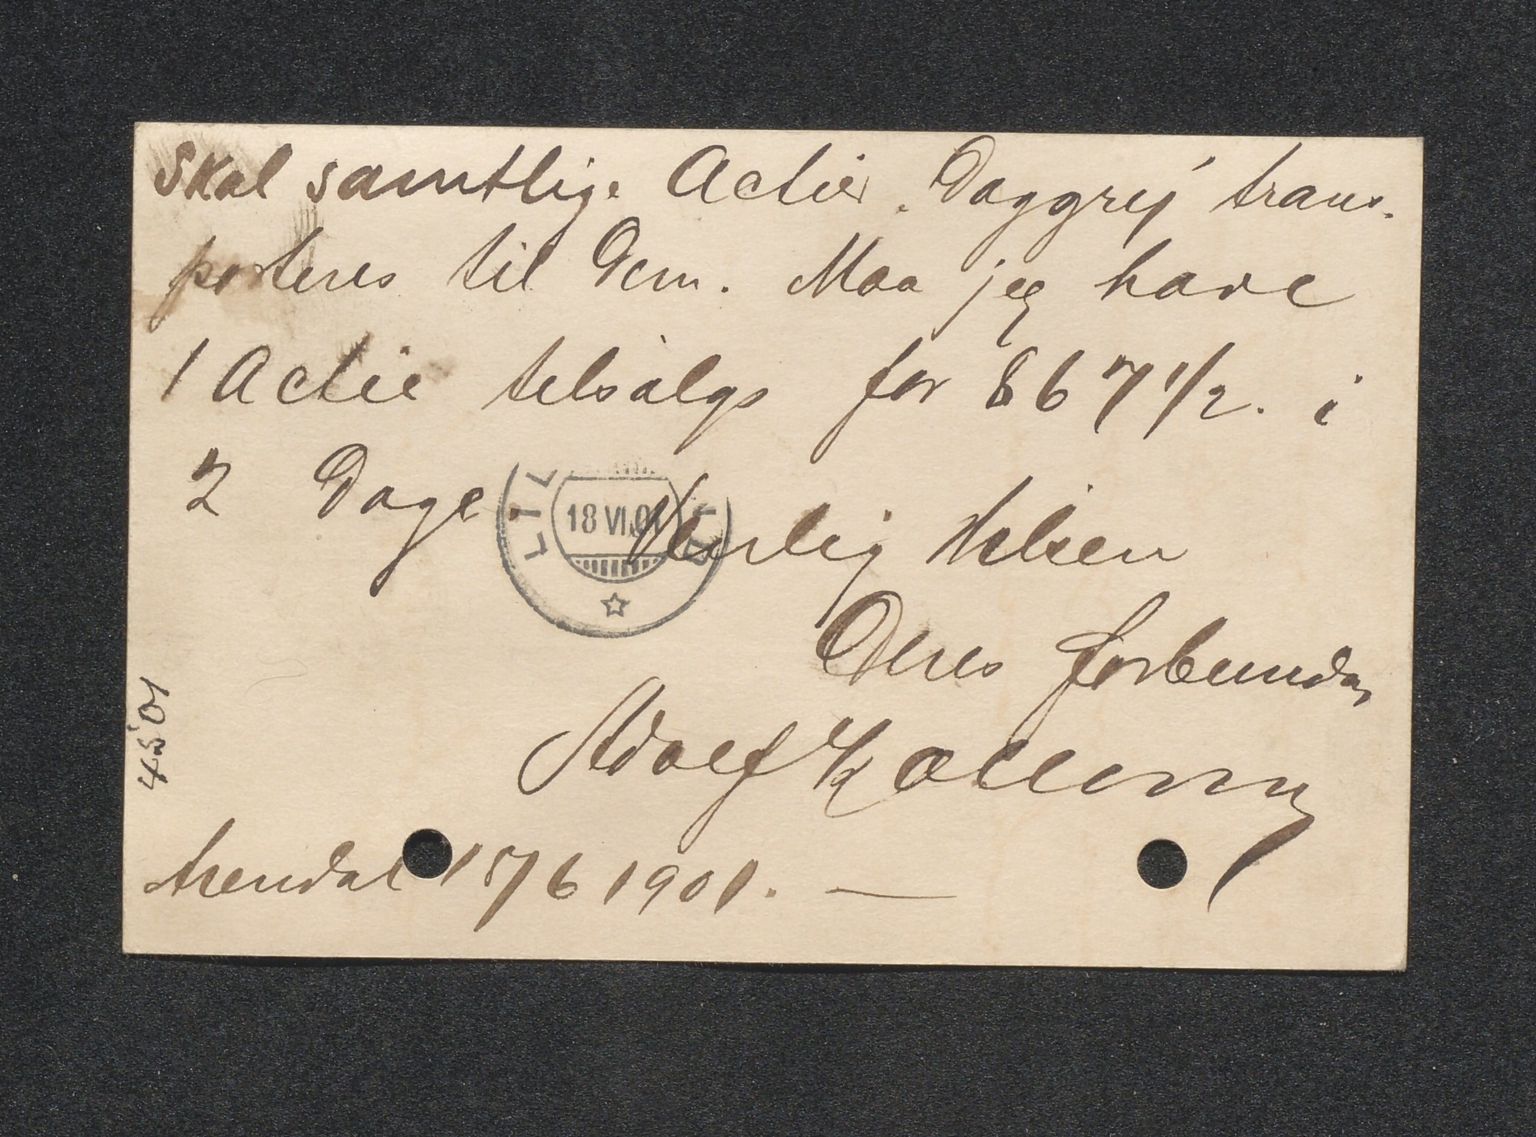 Skal samtlige Actier. Daggry trans-
porteres til Dem. Maa jeg have
1 Actie tilsalgs for 867 1/2. i
2 Dage.
LIL
18 VI.01
Venlig Hilsen
Deres forbundne
Adolf
Arendal 17 6 1901. —